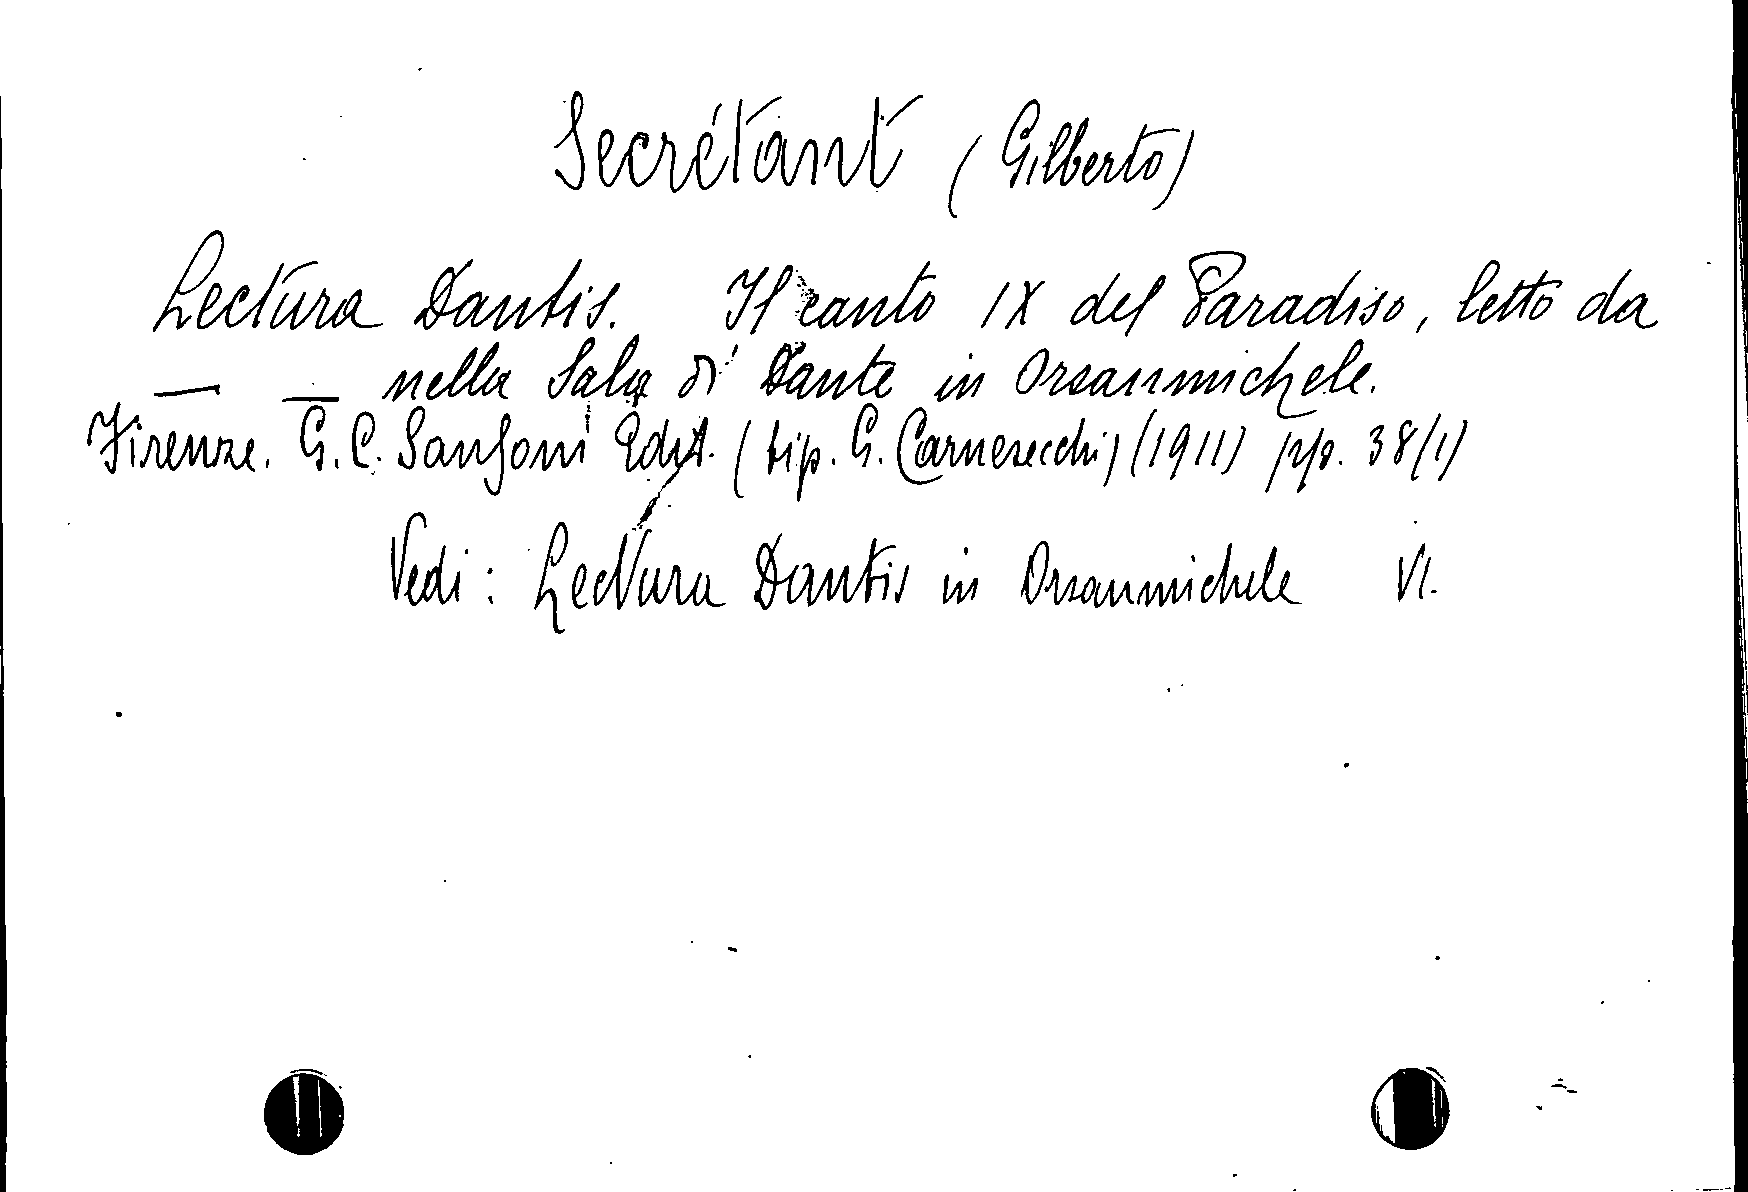 Secrétant (Gilberto)
Lectura Dantis. Il canto IX del Paradiso, letto da
— — nella Sala di Dante in Orsanmichele.
Firenze. G. C. Sansoni Edit. (tip. G. Carnesecchi) (1911) pp. 38/1)
Vedi: Lectura Dantis in Orsanmichele VI.